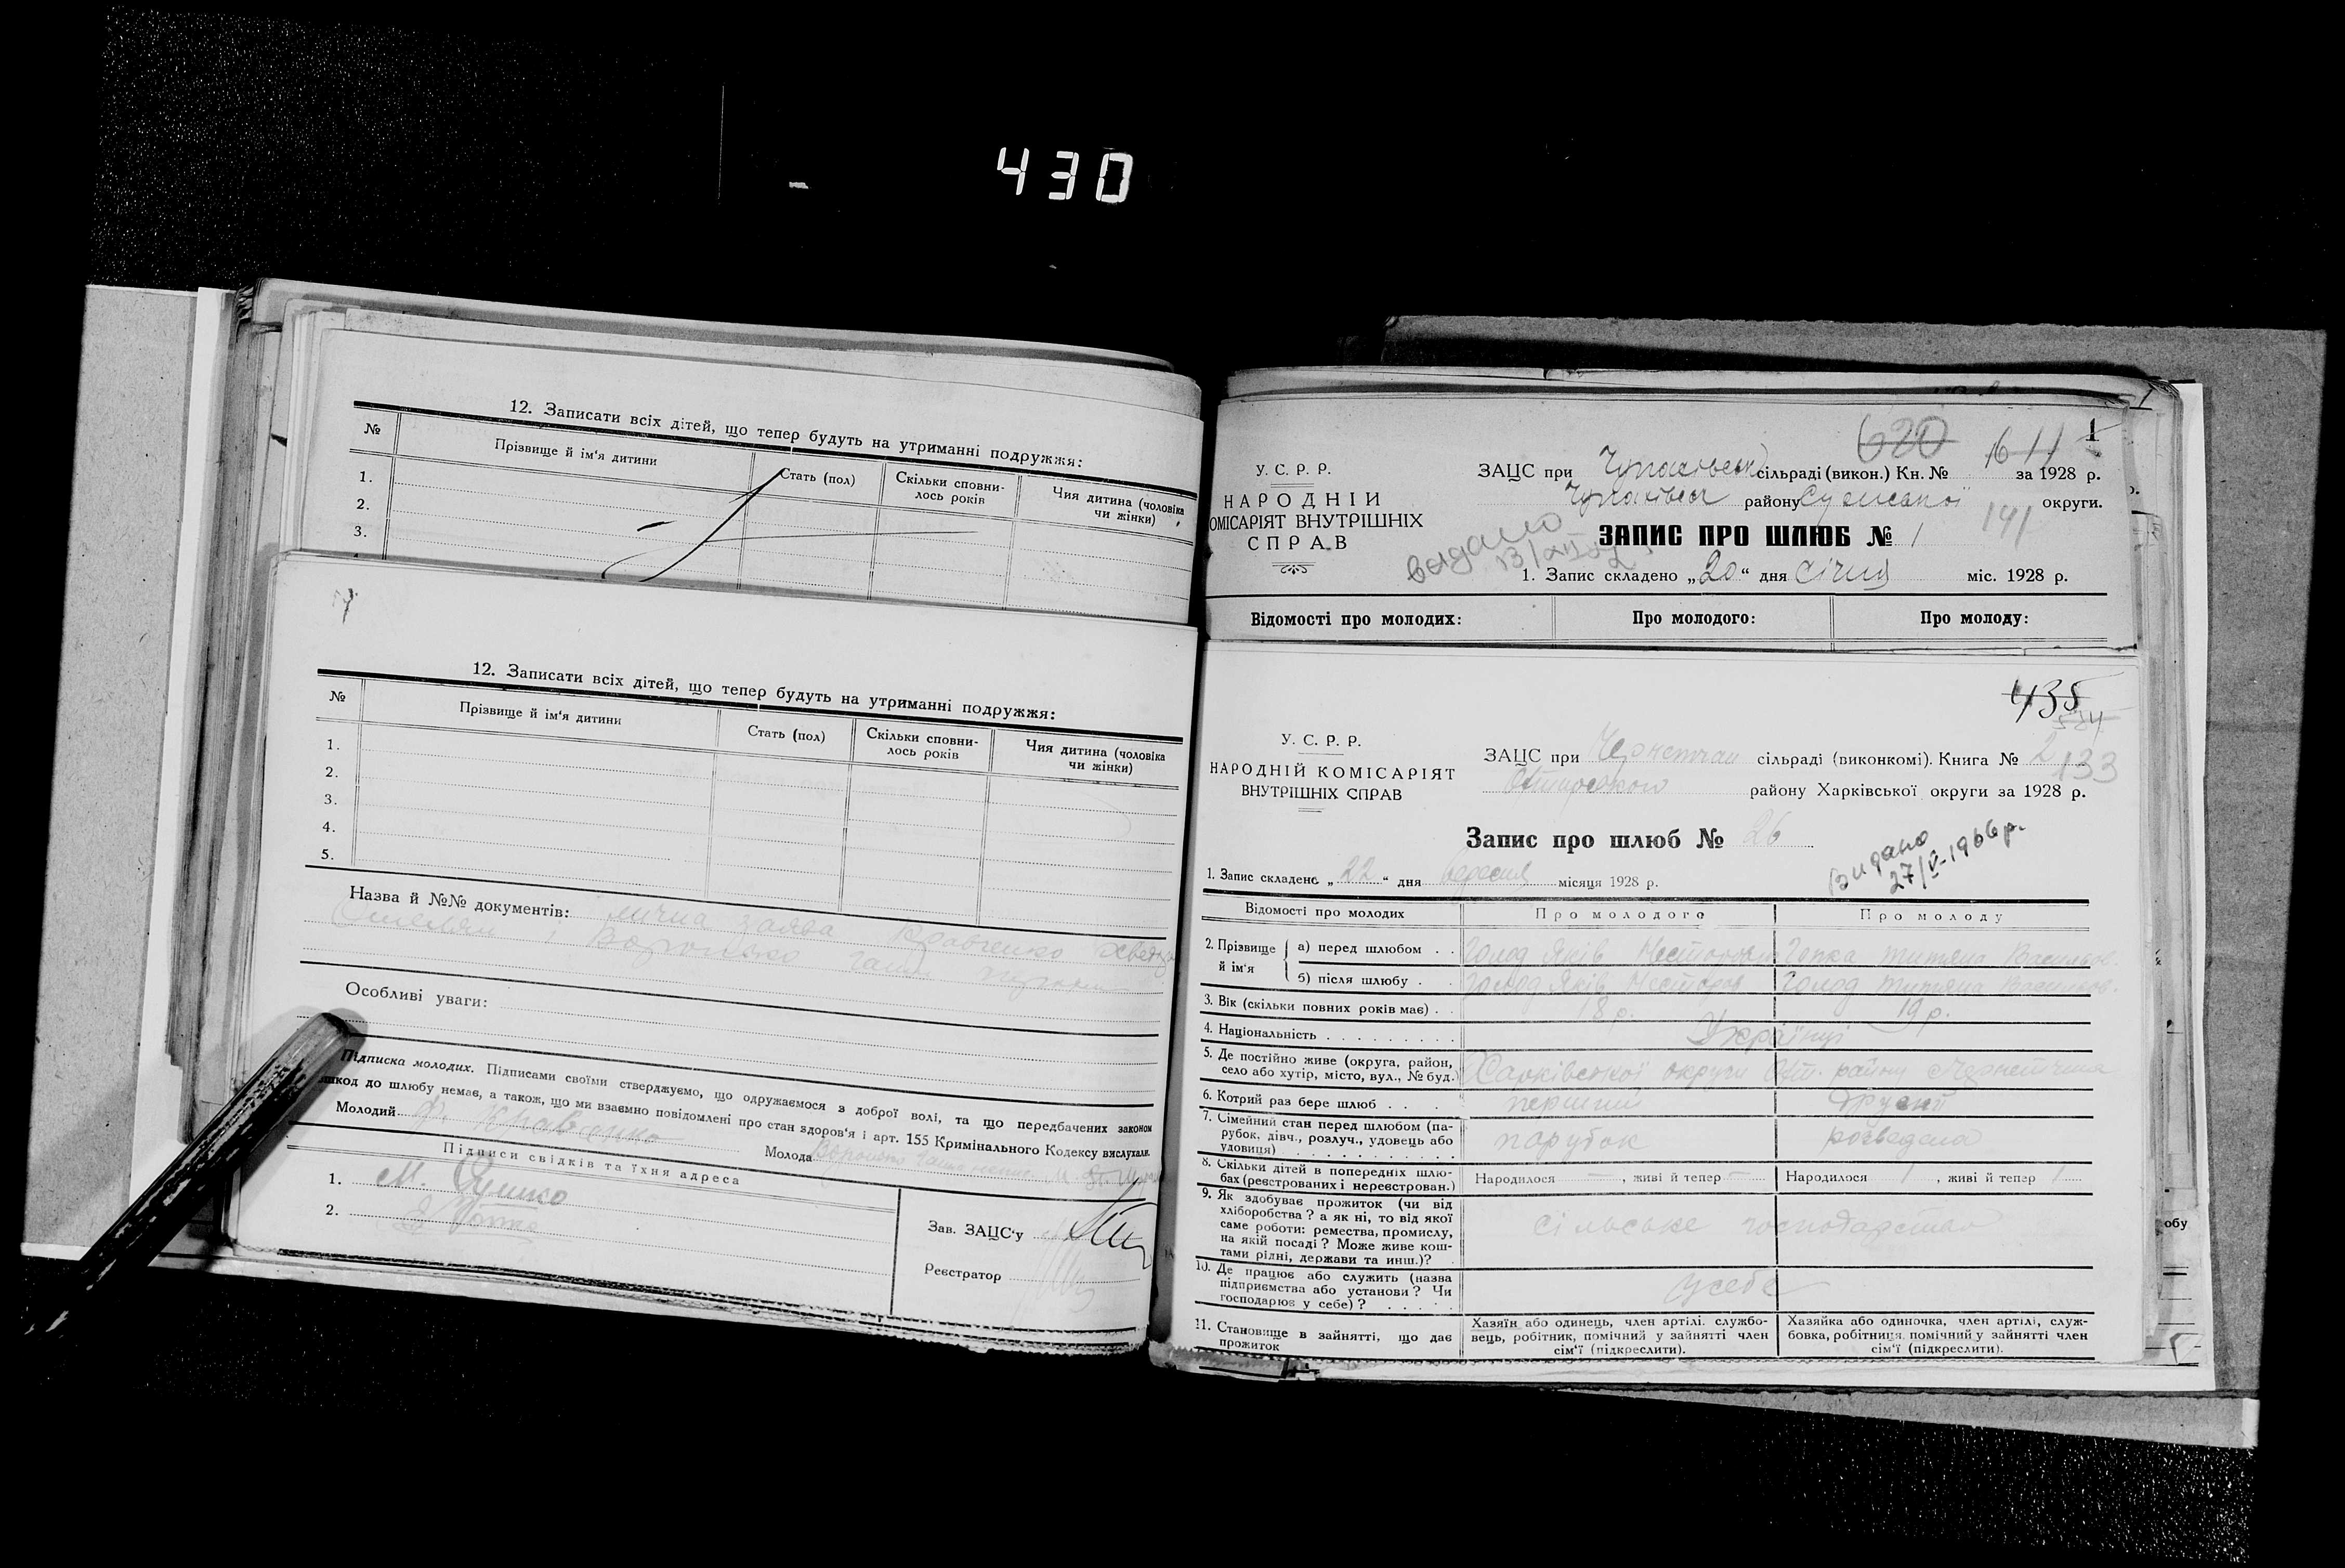 430
12. Записати всіх дітей, що тепер будуть на утриманні подружжя:
№ Прізвище й ім'я дитини Стать (пол) Скільки сповнилось років Чия дитина (чоловіка чи жінки)
1.
2.
3.
12. Записати всіх дітей, що тепер будуть на утриманні подружжя:
№ Прізвище й ім'я дитини Стать (пол) Скільки сповни-
лось років Чия дитина (чоловіка
чи жінки)
1.
2.
3.
4.
5.
Назва й №№ документів: лична заява Кравченко
Особливі уваги:
Підписка молодих. Підписами своїми стверджуємо, що одружаємося з доброї волі, та що передбачених законом
шкод до шлюбу немає, а також, що ми взаємно повідомлені про стан здоров'я і арт. 155 Кримінального Кодексу вислухали.
Молодий Кравченко Молода
Підписи свідків та їхня адреса
1. М.
2.
Зав. ЗАЦС'у
Реєстратор
620 611 1
У. С. Р. Р.
НАРОДНІЙ
ОМІСАРІЯТ ВНУТРІШНІХ
СПРАВ
ЗАЦС при Чупахівськ сільраді (викон.) Кн. № за 1928 р.
Чупахівськ району Сумської округи.
191
видано
ЗАПИС ПРО ШЛЮБ № 1
1. Запис складено „20" дня січня міс. 1928 р.
Відомості про молодих: Про молодого: Про молоду:
435
У. С. Р. Р.
НАРОДНІЙ КОМІСАРІЯТ
ВНУТРІШНІХ СПРАВ
ЗАЦС при сільраді (виконкомі). Книга № 2
133
району Харківської округи за 1928 р.
Запис про шлюб № 26
Видано
27/V-1966р.
1. Запис складено „22" дня вересня місяця 1928 р.
Відомості про молодих Про молодого Про молоду
2. Прізвище й ім'я а) перед шлюбом . . Голод Яків Нестор Тетяна
б) після шлюбу . Голод Яків Нестор Голод Тетяна
3. Вік (скільки повних років має) . . 18 р. 19 р.
4. Національність . . . . . . . . . Українці
5. Де постійно живе (округа, район,
село або хутір, місто, вул., № буд.) Харківської округи район
6. Котрий раз бере шлюб . . . . перший другий
7. Сімейний стан перед шлюбом (па-
рубок, дівч., розлуч., удовець або
удовиця) . . . . . . . . . . . парубок розведена
8. Скільки дітей в попередніх шлю-
бах (реєстрованих і нереєстрован.) Народилося — , живі й тепер — Народилося 1 , живі й тепер 1
9. Як здобуває прожиток (чи від
хліборобства? а як ні, то від якої
саме роботи: ремества, промислу,
на якій посаді? Може живе кош-
тами рідні, держави та инш.)? сільське господарство
10. Де працює або служить (назва
підприємства або установи? Чи
господарює у себе)? . . . . . у себе
11. Становище в зайнятті, що дає
прожиток
Хазяїн або одинець, член артілі, службо-
вець, робітник, помічний у зайнятті член
сім'ї (підкреслити).
Хазяйка або одиночка, член артілі, служ-
бовка, робітниця, помічний у зайнятті член
сім'ї (підкреслити).
обу